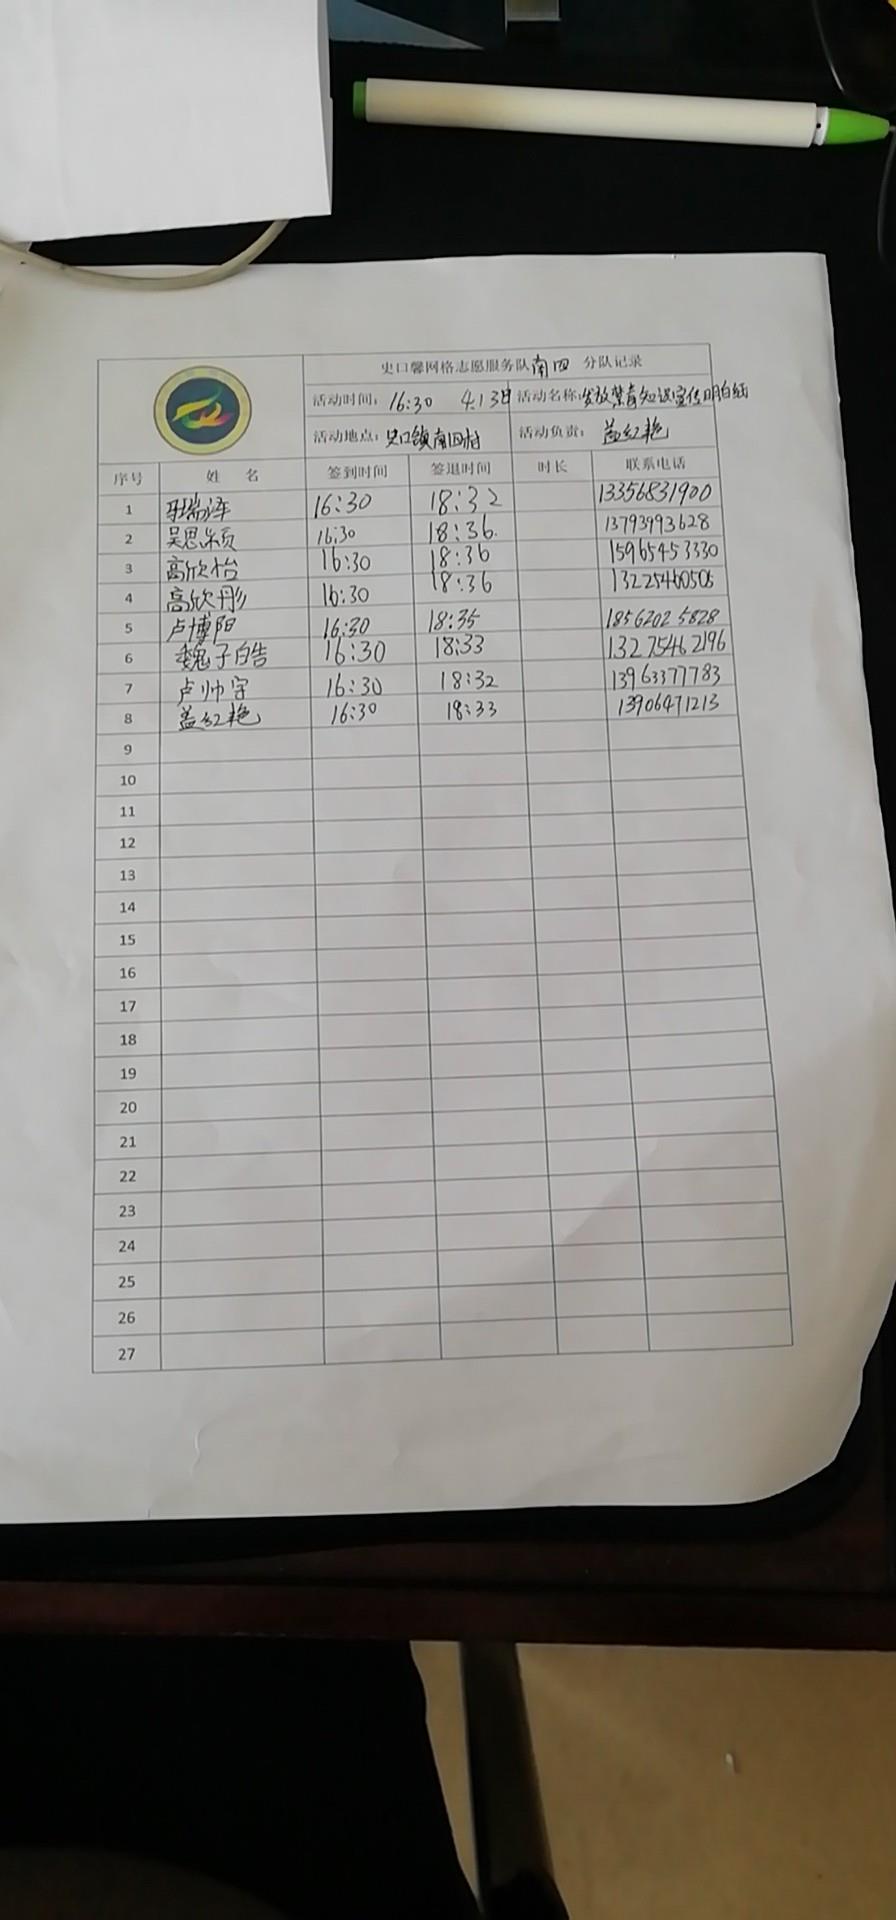 史口馨网格志愿服务队南四 分队记录
活动时间: 16:30 4.13日 活动名称:发放禁毒知识宣传明白纸
活动地点: 史口镇南四村 活动负责: 盖红艳
序号 姓 名 签到时间 签退时间 时长 联系电话
1 瑞泽 16:30 18:32 13356831900
2 吴思颖 16:30 18:36 13793993628
3 高欣怡 16:30 18:36 15965453330
4 高欣彤 16:30 18:36 13225460506
5 卢博阳 16:30 18:35 18562025828
6 魏子皓 16:30 18:33 13275462196
7 卢帅宇 16:30 18:32 13963377783
8 盖红艳 16:30 18:33 13906471213
9
10
11
12
13
14
15
16
17
18
19
20
21
22
23
24
25
26
27